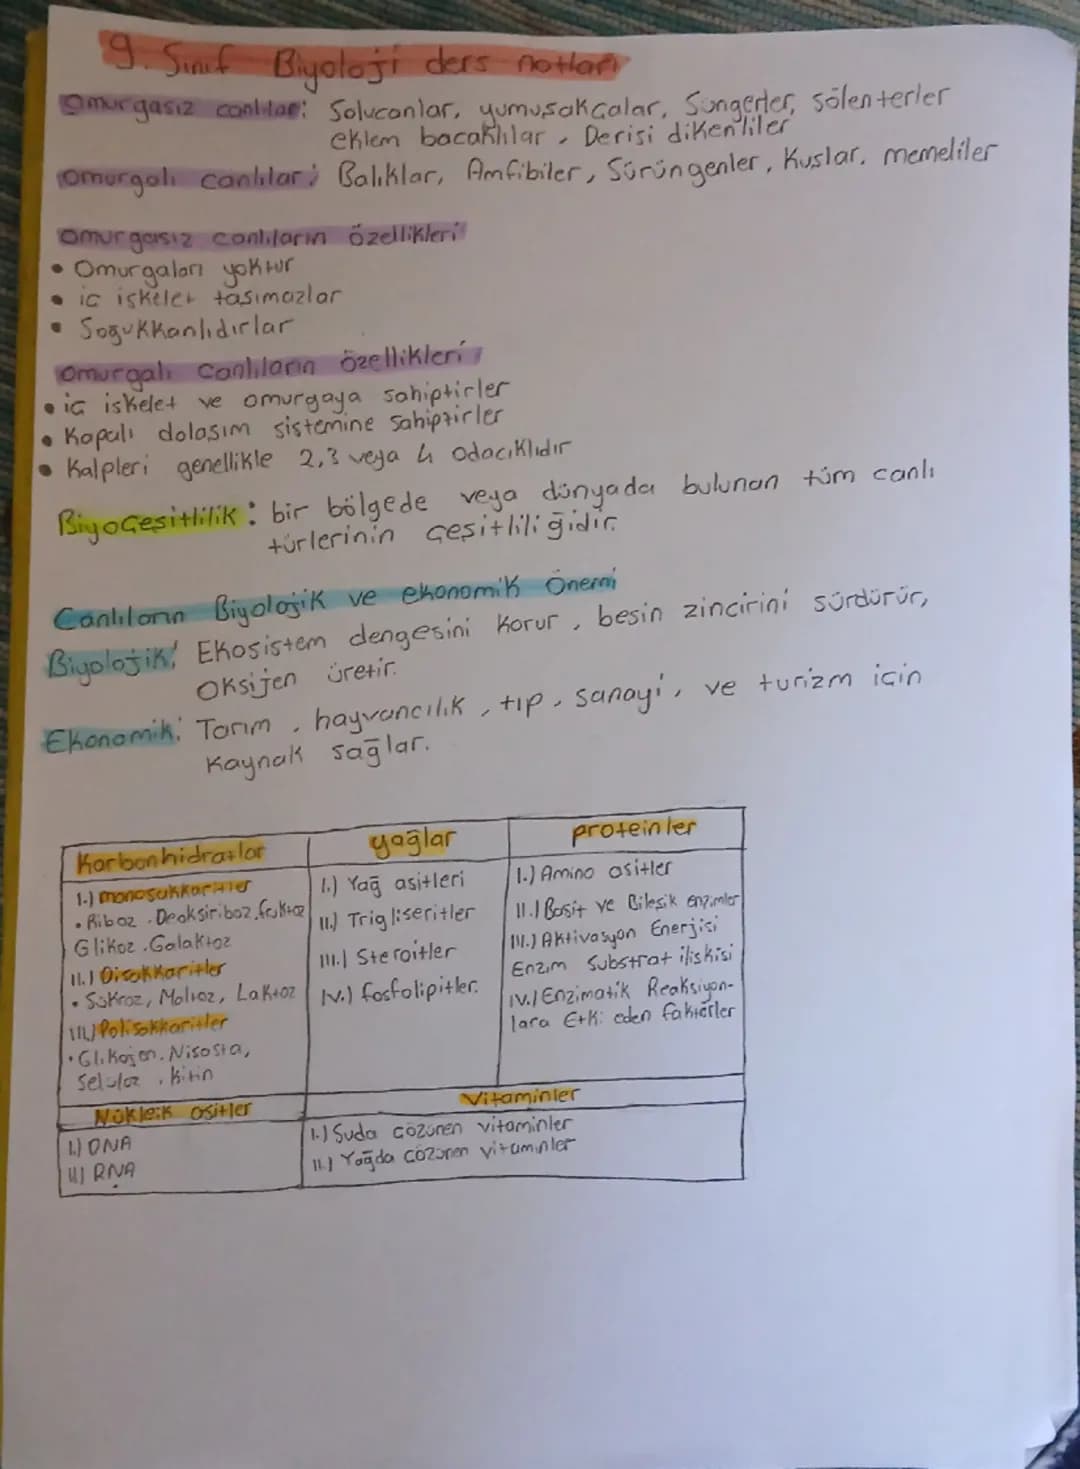 9. Sınıf Biyoloji ders notları
Omurgasız canlılar: Solucanlar, yumuşakçalar, Süngerler, sölenterler
eklem bacaklılar, Derisi dikenliler
omurgalı canlılar: Balıklar, Amfibiler, Sürüngenler, Kuslar, memeliler
omurgasız canlıların özellikleri
• Omurgaları yoktur
• iç iskelet tasımazlar
• Soğukkanlıdırlar
omurgalı canlıların özellikleri
• iç iskelet ve omurgaya sahiptirler
• Kapalı dolaşım sistemine sahiptirler
• Kalpleri genellikle 2,3 veya 4 odacıklıdır
Biyoçeşitlilik: bir bölgede veya dünyada bulunan tüm canlı
türlerinin çeşitliliğidir.
Canlıların Biyolojik ve ekonomik Önemi
Biyolojik: Ekosistem dengesini korur, besin zincirini sürdürür,
oksijen üretir.
Ekonomik: Tarım, hayvancılık, tıp, sanayi, ve turizm için
kaynak sağlar.
Karbonhidratlar
1.) monosakkaritler
• Riboz. Deoksiriboz, fruktoz
Glikoz. Galaktoz
II.) Disakkaritler
• Sükroz, Maltoz, Laktoz
III.) Polisakkaritler
• Glikojen. Nisasta,
Selüloz, kitin
yağlar
I.) Yağ asitleri
II.) Trigliseritler
III.) Steroitler
IV.) fosfolipitler.
proteinler
I.) Amino asitler
II.) Basit ve Bileşik enzimler
III.) Aktivasyon Enerjisi
Enzim Substrat ilişkisi
IV.) Enzimatik Reaksiyon-
lara Etki eden faktörler
Nükleik asitler
I.) DNA
II) RNA
Vitaminler
I.) Suda çözünen vitaminler
II.) Yağda çözünen vitaminler